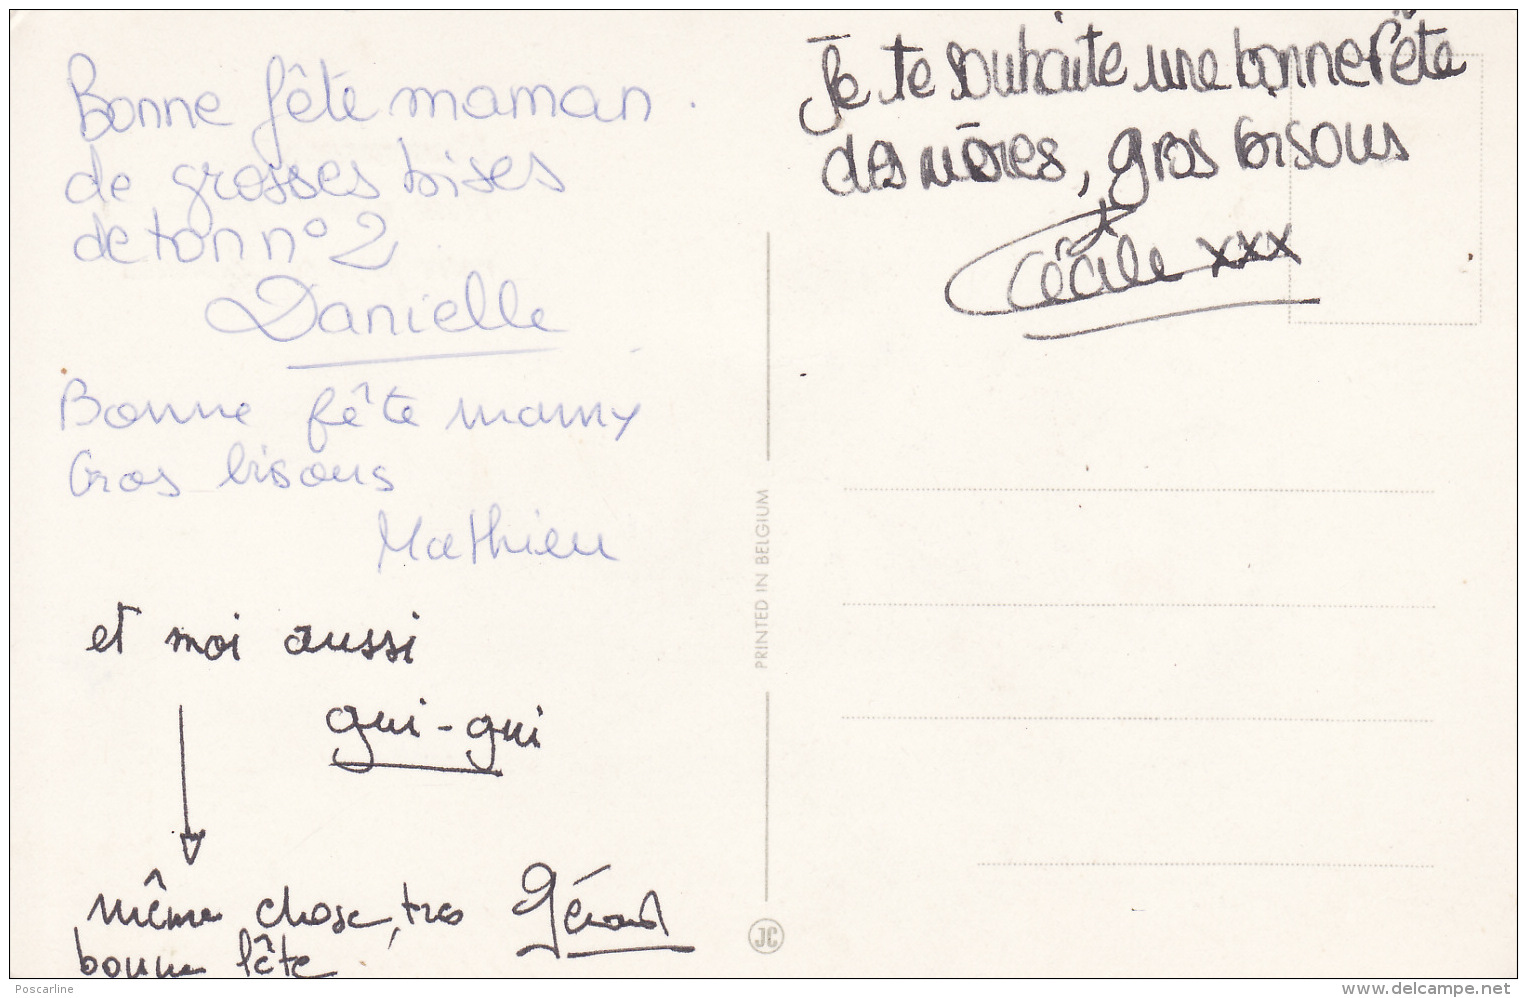 Bonne fête maman.
de grosses bises
de ton n° 2
Danielle
Bonne fête mamy
Gros bisous
Mathieu
et moi aussi
gui-gui
même chose, tres
bonne fête
Gérard
PRINTED IN BELGIUM
JC
Je te souhaite une bonne fête
des mères, gros bisous
Cécile xxx
Poscarline
www.delcampe.net